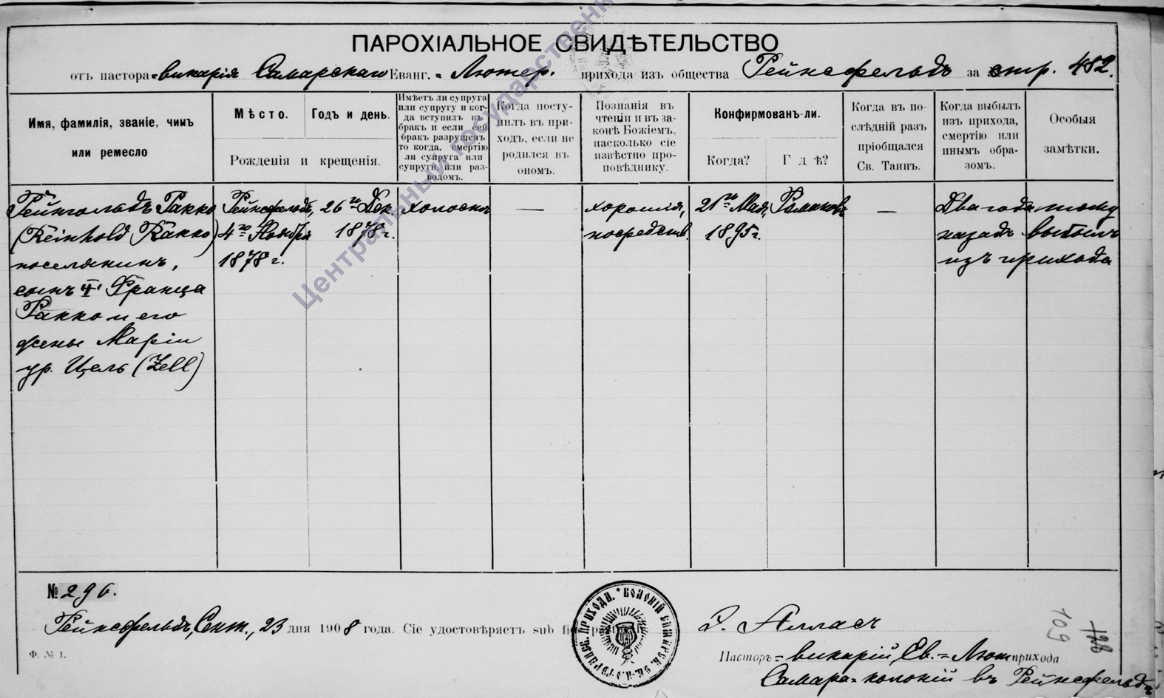 ПАРОХІАЛЬНОЕ СВИДѢТЕЛЬСТВО
отъ пастора=викарія Самарскаго Еванг.=Лютер. прихода изъ общества Рейнсфельдъ за стр. 452.
Имя, фамилія, званіе, чимъ
или ремесло
Мѣсто. Годъ и день.
Рожденія и крещенія.
Имѣетъ ли супруга
или супругу и ког-
да вступилъ въ
бракъ и если
бракъ разрушенъ
то когда, смертію
ли супруга или
супруги или раз-
водомъ.
Когда посту-
пилъ въ при-
ходъ, если не
родился въ
ономъ.
Познанія въ
чтеніи и въ за-
конѣ Божіемъ,
насколько сіе
извѣстно про-
повѣднику.
Конфирмованъ-ли.
Когда? Гдѣ?
Когда въ по-
слѣдній разъ
пріобщался
Св. Таинъ.
Когда выбылъ
изъ прихода,
смертію или
инымъ обра-
зомъ.
Особыя
замѣтки.
Рейнгольдъ Ракко
(Reinhold Rakko)
поселянинъ,
сынъ † Франца
Ракко и его
жены Маріи
ур. Цель (Zell)
Рейнсфельдъ,
4го Ноября
1878 г.
26го Дек.
1878 г.
холостъ
—
хорошія,
посредств.
21го Мая,
1895 г.
—
Два года тому
назадъ выбылъ
изъ прихода
№ 296.
Рейнсфельдъ, Сент., 23 дня 1908 года. Сіе удостовѣряетъ sub
Аллас
Пасторъ=викарій, Ев.=Лют. прихода
Самара=колоній въ Рейнсфельдъ
Ф. № 1.
109
128
Центральный государственный